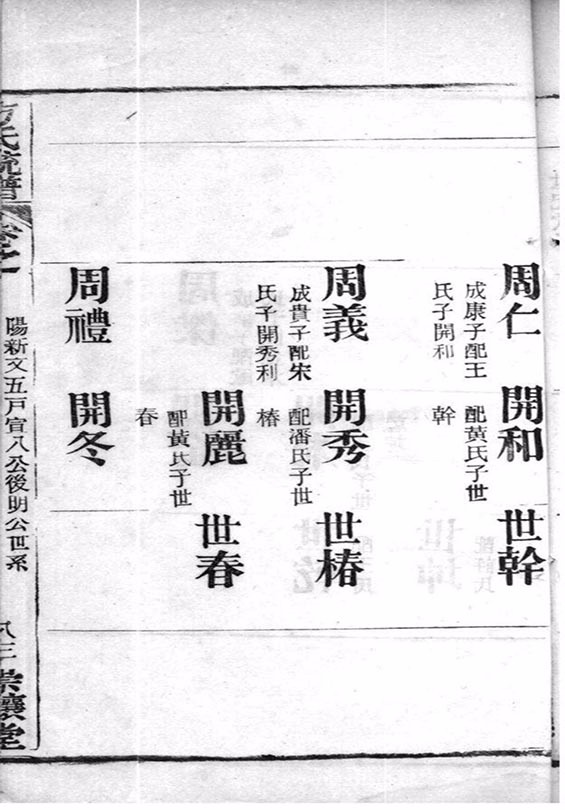 周仁
成康子配王
氏子開和
開和
配黄氏子世
幹
世幹
周義
成貴子配宋
氏子開秀利
開秀
配潘氏子世
椿
世椿
開麗
配黃氏子世
春
世春
周禮
開冬
氏統譜
卷之
陽新文五戸宣八公後明公世系
八三
崇讓堂